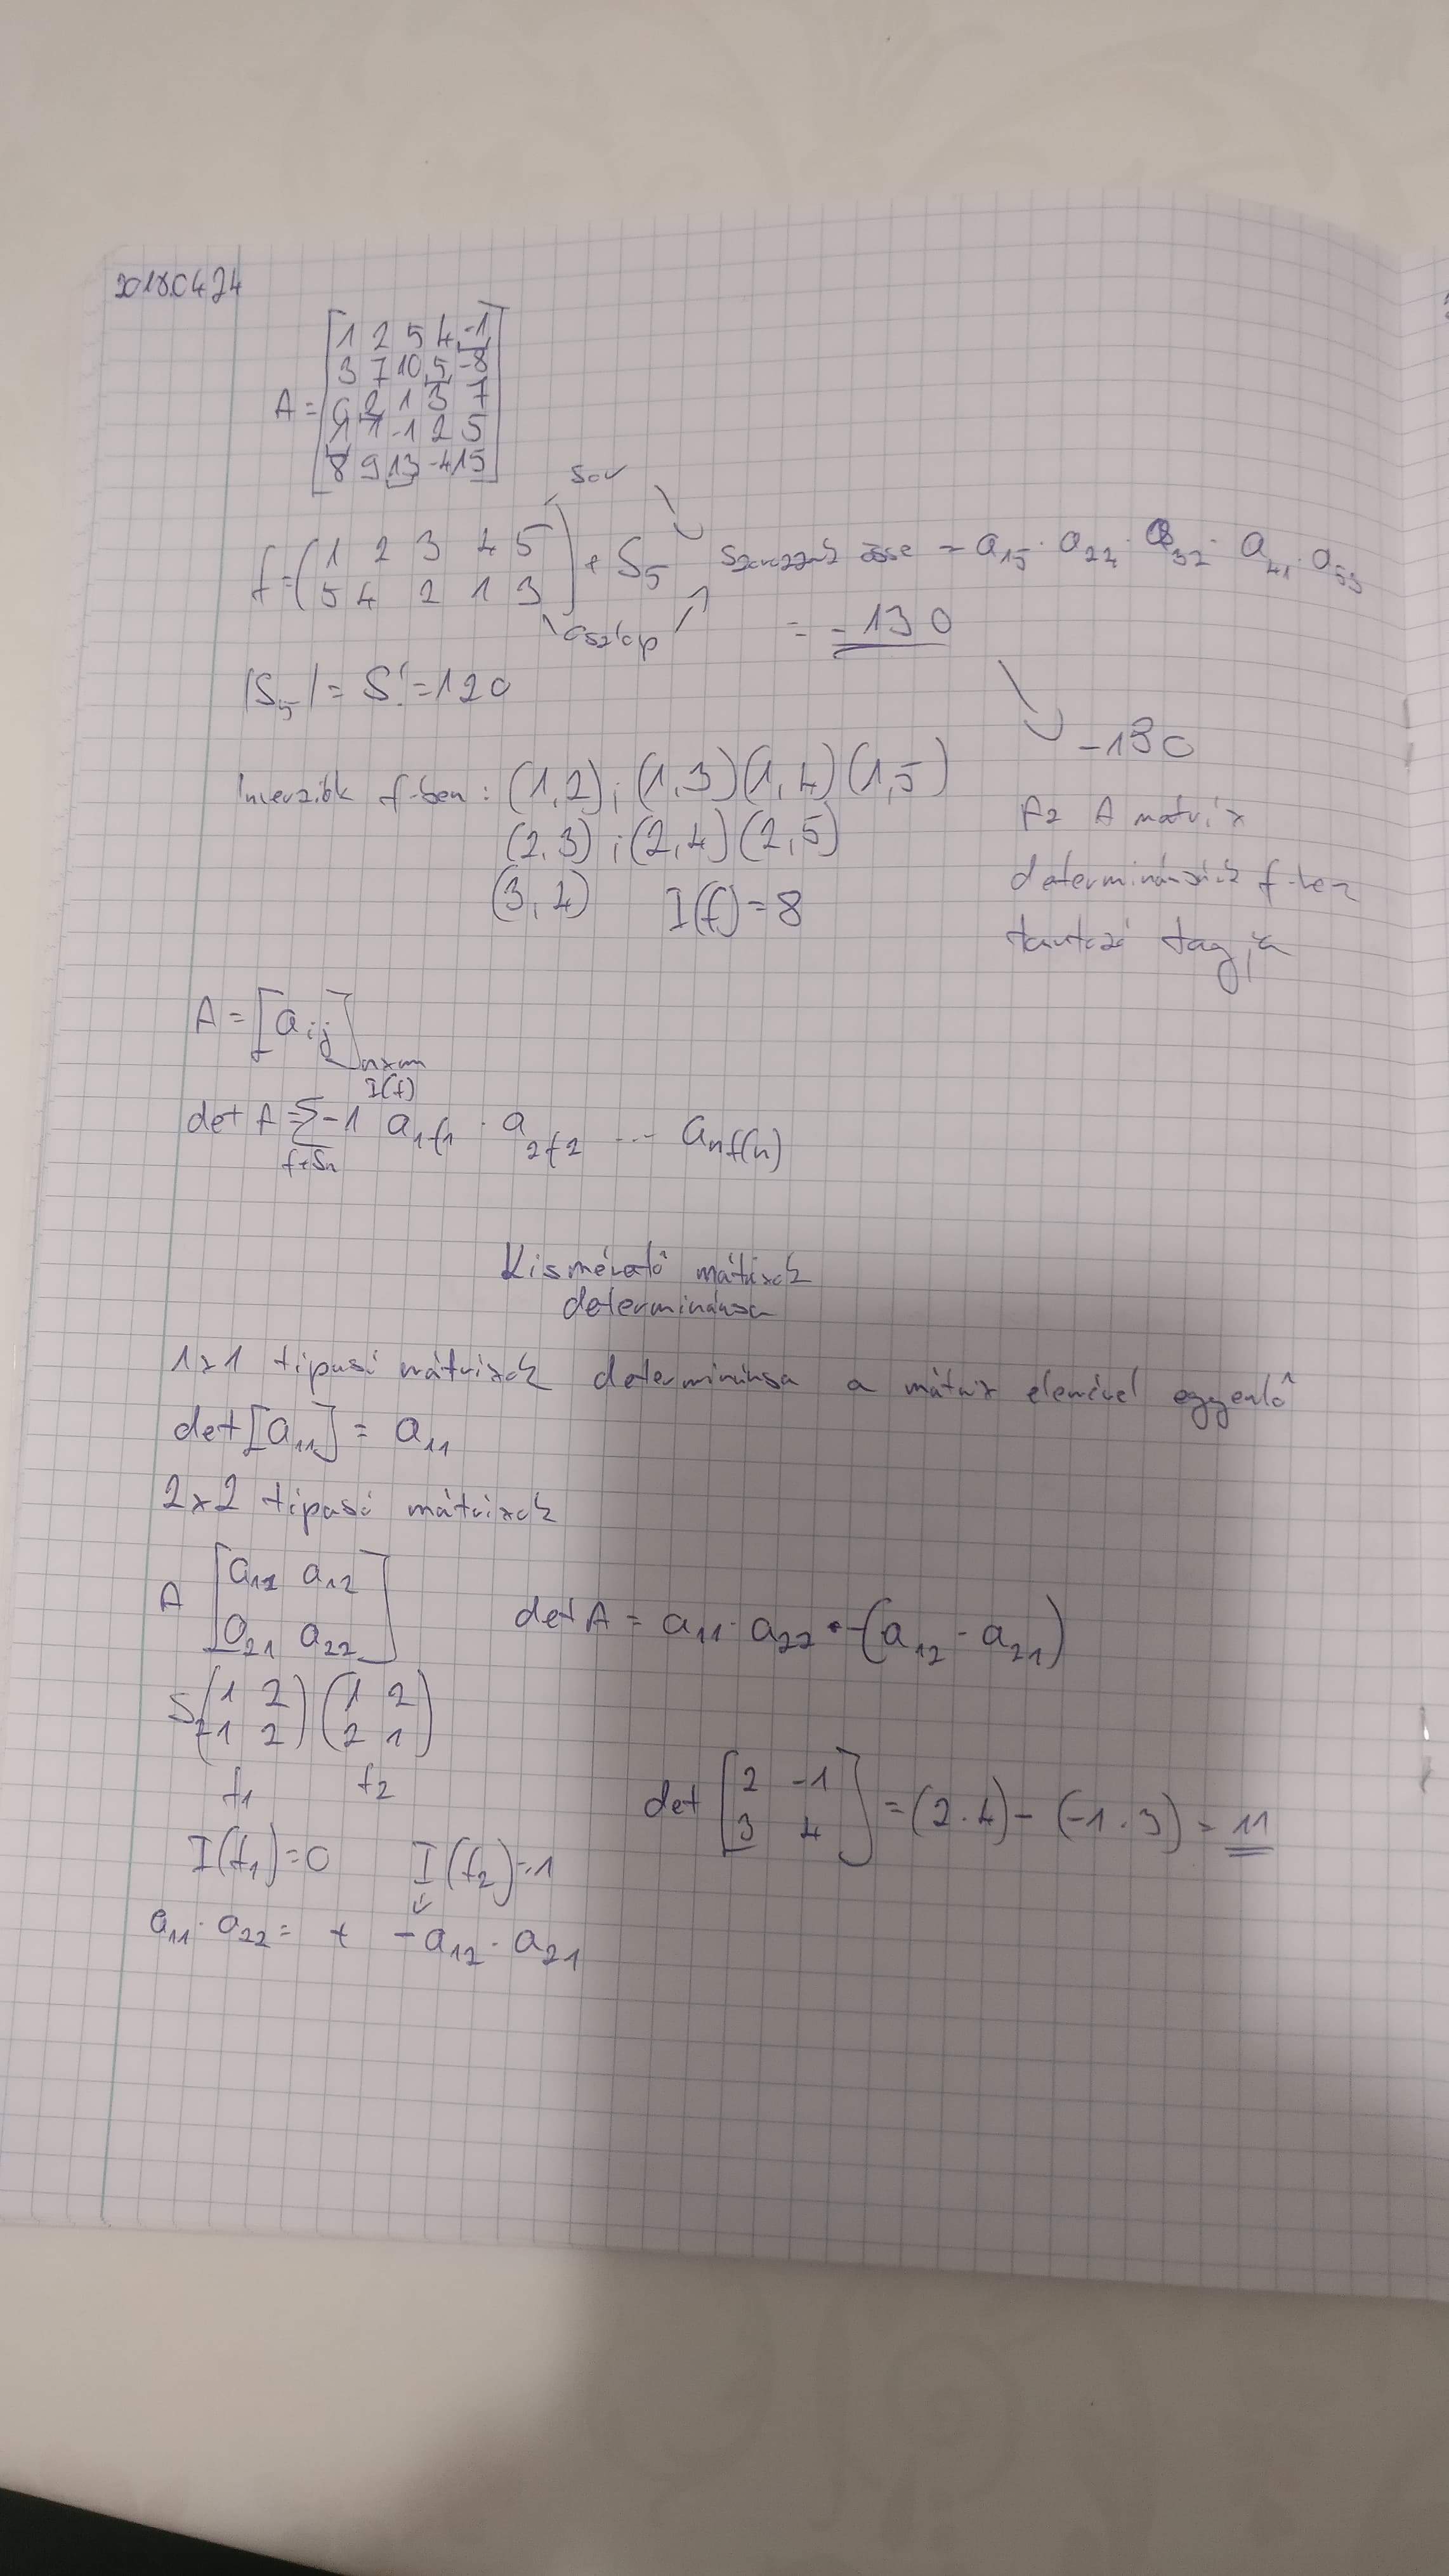 2018.04.24
A = [1 2 5 4 -1
3 7 10 5 -8
6 2 1 3 7
1 7 -1 2 5
8 9 13 -4 15]
sor
f = (1 2 3 4 5
5 4 2 1 3) ∈ S₅ = a₁₅ · a₂₄ · a₃₂ · a₄₁ · a₅₃
oszlop = -130
|S₅| = 5! = 120
-130
Inverziók f-ben: (1,2); (1,3) (1,4) (1,5)
(2,3); (2,4) (2,5)
(3,4) I(f) = 8
Az A mátrix
determinánsának f-hez
tartozó tagja
A = [aᵢⱼ]
I(f)
det A = Σ -1 a₁f₁ · a₂f₂ ... aₙf(n)
f∈Sₙ
Kisméretű mátrixok
determinánsa
1x1 tipusú mátrixok determinánsa a mátrix elemével eggyenlő
det [a₁₁] = a₁₁
2x2 tipusú mátrixok
A [a₁₁ a₁₂
a₂₁ a₂₂] det A = a₁₁ · a₂₂ + -(a₁₂ · a₂₁)
S₂ (1 2
1 2) (1 2
2 1)
f₁ f₂
det [2 -1
3 4] = (2·4) - (-1·3) = 11
I(f₁) = 0 I(f₂) = 1
a₁₁ · a₂₂ = + -a₁₂ · a₂₁